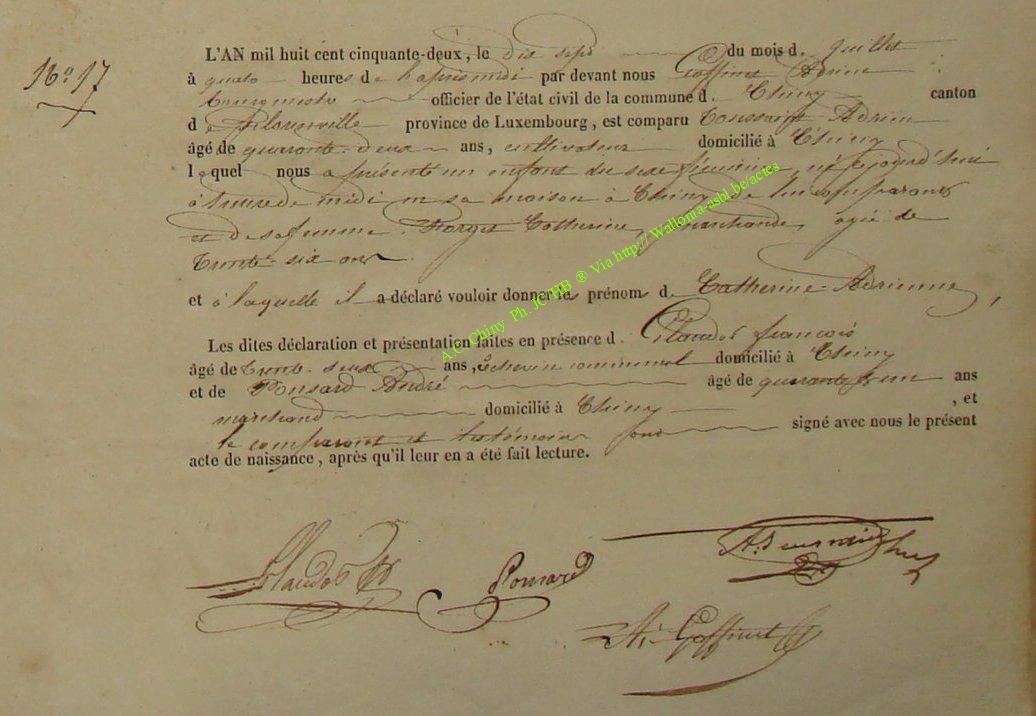 N° 17
L'AN mil huit cent cinquante-deux, le dix sept du mois d. Juillet
à quatre heures de l'après midi par devant nous Goffinet Adrien
bourgmestre officier de l'état civil de la commune d. Chiny canton
de Florenville province de Luxembourg, est comparu Toussaint Adrien
âgé de quarante-deux ans, cultivateur domicilié à Chiny
lequel nous a présenté un enfant du sexe féminin, né aujourd'hui
à heure de midi en sa maison à Chiny de lui comparant
et de sa femme Catherine, marchande, agée de
trente-six ans.
et à laquelle il a déclaré vouloir donner les prénom d. Catherine-Adrienne,
Les dites déclaration et présentation faites en présence d. Claudot françois
âgé de trente- ans, échevin communal domicilié à Chiny
et de Ponsard André âgé de quarante un ans
marchand domicilié à Chiny, et
le comparant et témoins ont signé avec nous le présent
acte de naissance, après qu'il leur en a été fait lecture.
Claudot
Ponsard
Ad. Goffinet
A.C. Chiny Ph. JCAHB ® Via http://Wallonia-asbl.be/actes